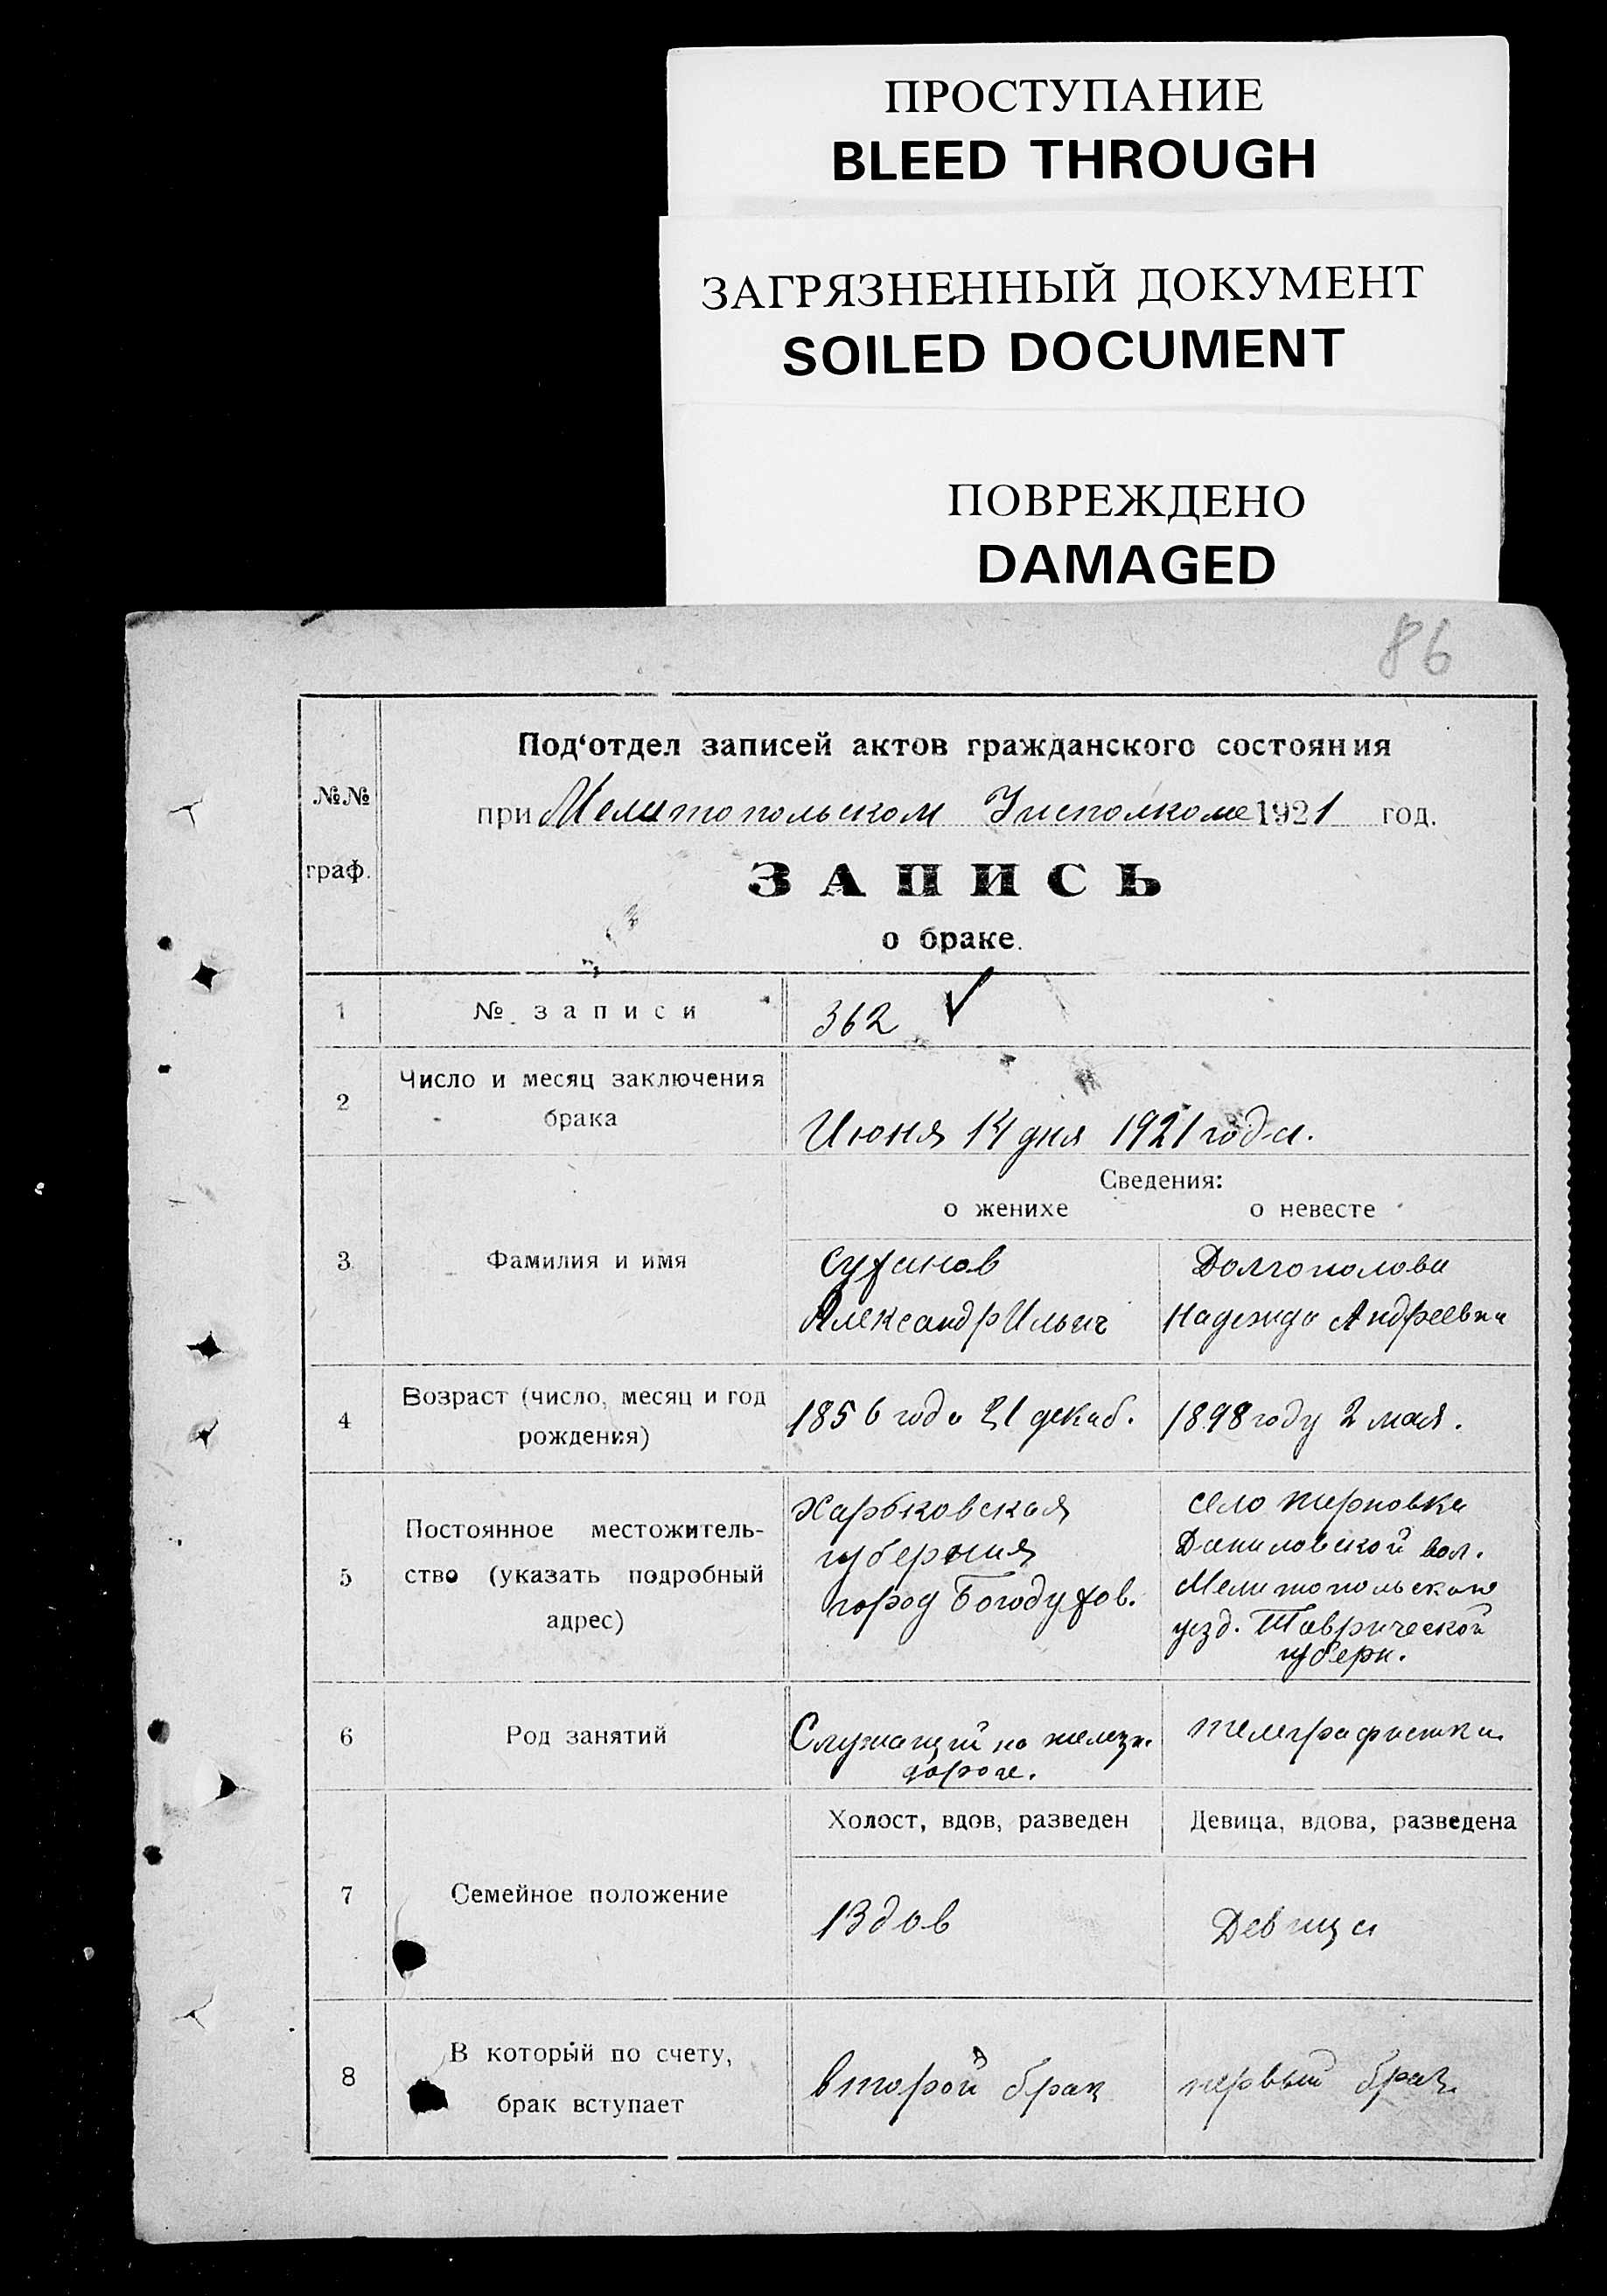 ПРОСТУПАНИЕ
BLEED THROUGH
ЗАГРЯЗНЕННЫЙ ДОКУМЕНТ
SOILED DOCUMENT
ПОВРЕЖДЕНО
DAMAGED
86
№№
граф.
Под‘отдел записей актов гражданского состояния
при Мелитопольском Уисполкоме 1921 год.
ЗАПИСЬ
о браке.
1 № записи 362
2 Число и месяц заключения
брака
Июня 14 дня 1921 года.
Сведения:
о женихе о невесте
3 Фамилия и имя
Суханов
Александр Ильич
Долгополова
Надежда Андреевна
4 Возраст (число, месяц и год
рождения)
1856 года 21 декаб.
1898 году 2 мая.
5 Постоянное местожитель-
ство (указать подробный
адрес)
Харьковская
губерния
город Богодухов.
село
Даниловской вол.
Мелитопольского
уезд. Таврической
губерн.
6 Род занятий
Служащий на железн.
дороге.
телеграфистка
Холост, вдов, разведен
Девица, вдова, разведена
7 Семейное положение
Вдов
Девица
8 В который по счету,
брак вступает
второй брак
первый брак